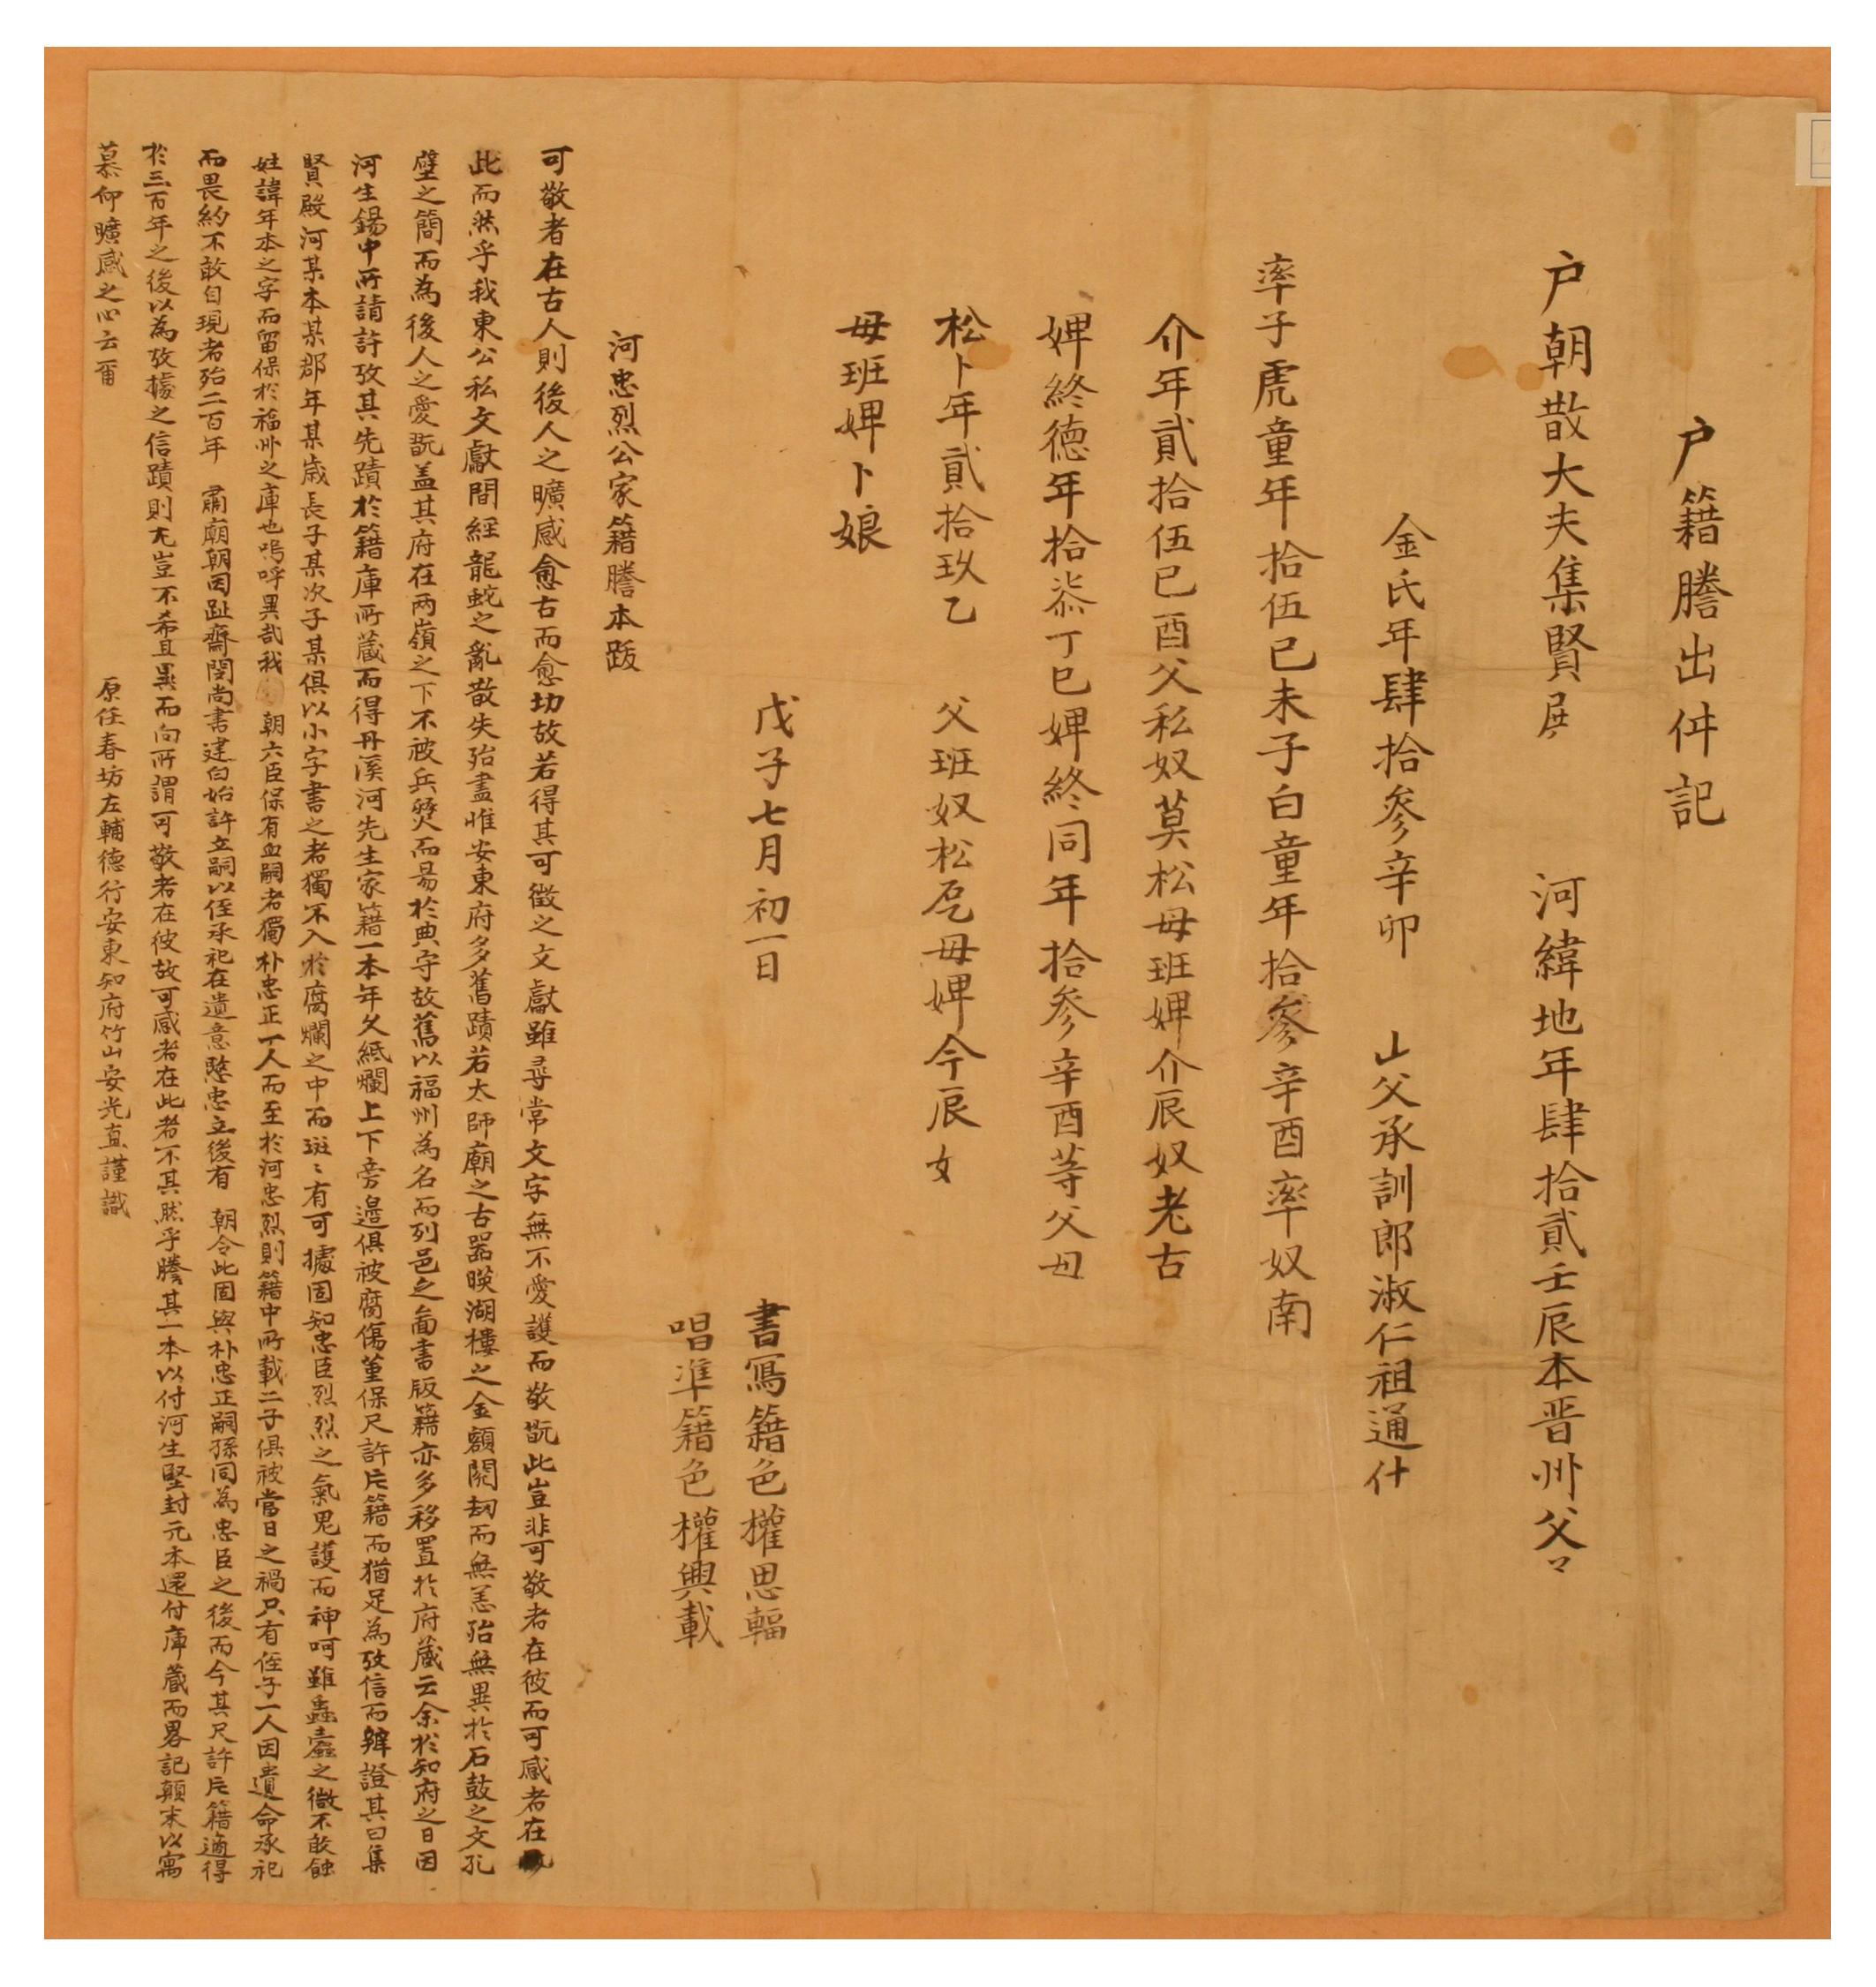 户籍謄出件記
户朝散大夫集賢展 河緯地年肆拾貳壬辰本晋州父
金氏年肆拾參辛卯 山父承訓郎淑仁祖通什
率子虎童年拾伍己未子白童年拾參辛酉率奴南
介年貳拾伍己酉父私奴莫松母班婢介辰奴老古
婢終德年拾柒丁巳婢終同年拾參辛酉等父母
松卜年貳拾玖乙 父班奴松 母婢今辰女
母班婢卜娘
戊子七月初一日
書寫籍色權思輻
唱準籍色權興載
河忠烈公家籍謄本跋
可敬者在古人則後人之曠感愈古而愈切故若得其可徵之文獻雖尋常文字無不愛護而敬翫此豈非可敬者在彼而可感者在
此而然乎我東公私文獻間經龍蛇之亂散失殆盡惟安東府多舊蹟若太師廟之古器暎湖樓之金額閱刼而無恙殆無異於石鼓之文孔
壁之簡而為後人之愛翫盖其府在兩嶺之下不被兵燹而昜於典守故舊以福州為名而列邑之啚書版籍亦多移置於府藏云余於知府之日因
河生錫中所請許攷其先蹟於籍庫所藏而得丹溪河先生家籍一本年久紙爛上下旁邉俱被腐傷菫保尺許片籍而猶足為攷信而辨證其曰集
賢殿河某本某郡年某歲長子某次子某俱以小字書之者獨不入於腐爛之中而斑〻有可據固知忠臣烈烈之氣鬼護而神呵雖蟲蠧之微不敢蝕
姓諱年本之字而留保於福州之庫也嗚呼異哉我 朝六臣保有血嗣者獨朴忠正一人而至於河忠烈則籍中所載二子俱被當日之禍只有侄子一人因遺命承祀
而畏約不敢自現者殆二百年 肅廟朝因趾齋閔尚書建白始許立嗣以侄承祀在遺意慜忠立後有 朝令此固與朴忠正嗣孫同為忠臣之後而今其尺許片籍適得
於三百年之後以為攷據之信蹟則尤豈不希且異而向所謂可敬者在彼故可感者在此者不其然乎謄其一本以付河生堅封元本還付庫藏而畧記顛末以寓
慕仰曠感之心云爾
原任春坊左輔德行安東知府竹山安光直謹識